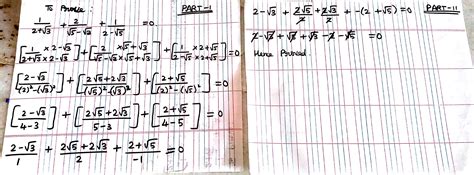 To Prove : PART-I
1/(2+√3) + 2/(√5-√3) + 1/(2-√5) = 0.
[1/(2+√3) × (2-√3)/(2-√3)] + [2/(√5-√3) × (√5+√3)/(√5+√3)] + [1/(2-√5) × (2+√5)/(2+√5)] = 0
[(2-√3)/((2)²-(√3)²)] + [(2√5+2√3)/((√5)²-(√3)²)] + [(2+√5)/((2)²-(√5)²)] = 0
[(2-√3)/(4-3)] + [(2√5+2√3)/(5-3)] + [(2+√5)/(4-5)] = 0
(2-√3)/1 + (2√5+2√3)/2 + (2+√5)/-1 = 0
PART-II
2-√3 + (2√5+2√3)/2 + -(2+√5) = 0
2-√3+√5+√3-2-√5 = 0
Hence Proved.